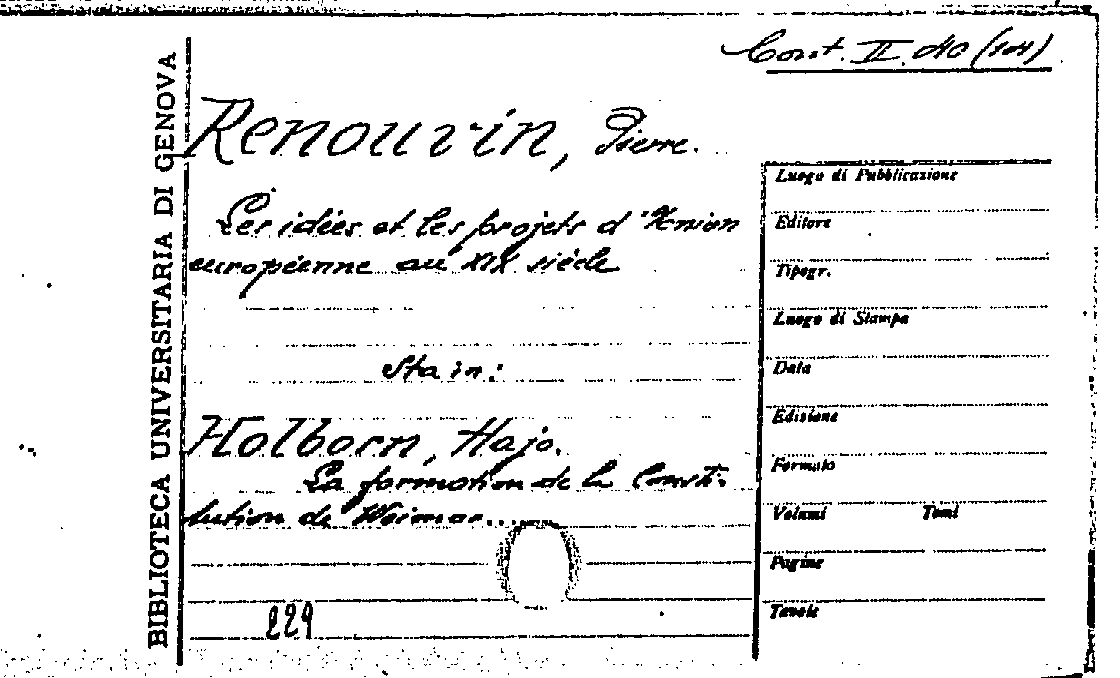 Cont. II. d10 (101)
BIBLIOTECA UNIVERSITARIA DI GENOVA
Renouvin, Pierre.
Les idées et les projets d'Union
européenne au XIX siécle
Sta in:
Holborn, Hajo.
La formation de la Consti-
tution de Weimar...
229
Luogo di Pubblicazione
Editore
Tipogr.
Luogo di Stampa
Data
Edizione
Formato
Volumi Tomi
Pagine
Tavole